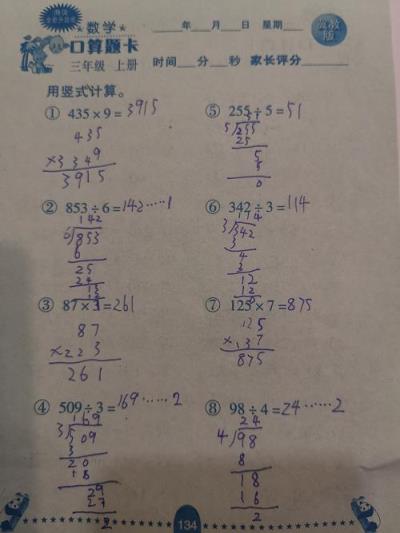 数学
___年___月___日 星期___
冀教版
口算题卡
三年级 上册 时间___分___秒 家长评分___
用竖式计算。
① 435×9=3915
435
×3349
3915
⑤ 255÷5=51
51
5√255
25
5
5
0
② 853÷6=142……1
142
6√853
6
25
24
13
12
⑥ 342÷3=114
114
3√342
3
4
3
12
12
③ 87×3=261
87
×223
261
⑦ 125×7=875
125
×137
875
④ 509÷3=169……2
169
3√509
3
20
18
29
27
2
⑧ 98÷4=24……2
24
4√98
8
18
16
2
134